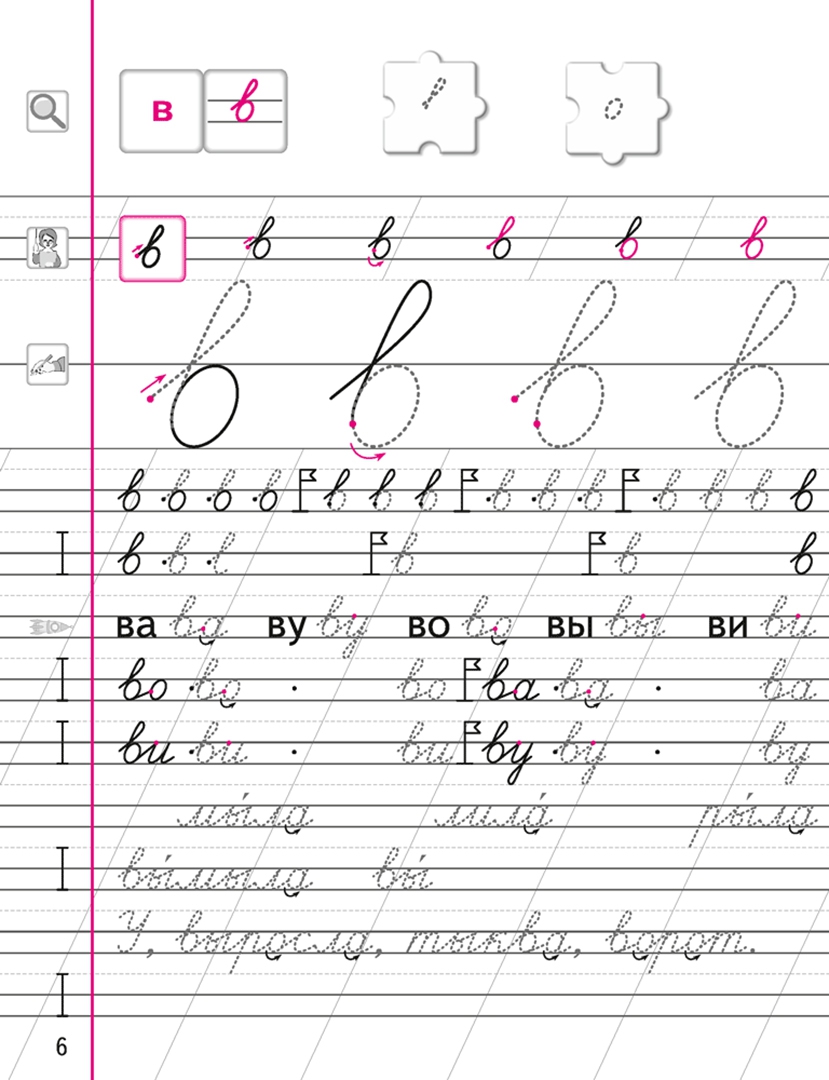 в в
в в в в в в
в в в в
в в в в в в в в в в в в в
в в в в в
ва ва ву ву во во вы вы ви ви
во во во ва ва ва
ви ви ви ву ву ву
мы́ла лила́ ры́ла
вы́мыла вы́
У, выросла, тыква, ворот.
6